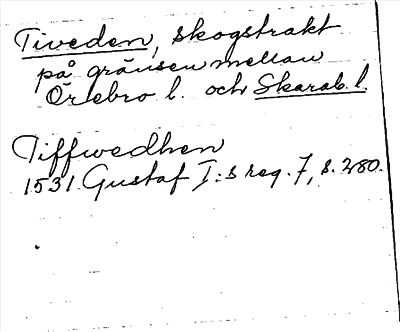 Tiveden, skogstrakt
på gränsen mellan
Örebro l. och Skarab. l.
Tiffwedhen
1531 Gustaf I:s reg. 7, s. 280.